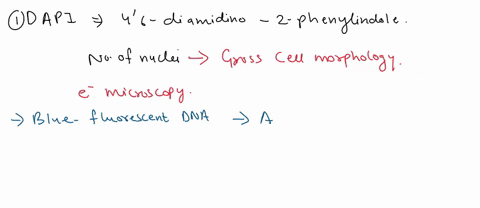 ① DAPI ⇒ 4'6-diamidino - 2-phenylindole.
No. of nuclei → Gross Cell morphology.
e⁻ microscopy.
→ Blue- fluorescent DNA → A